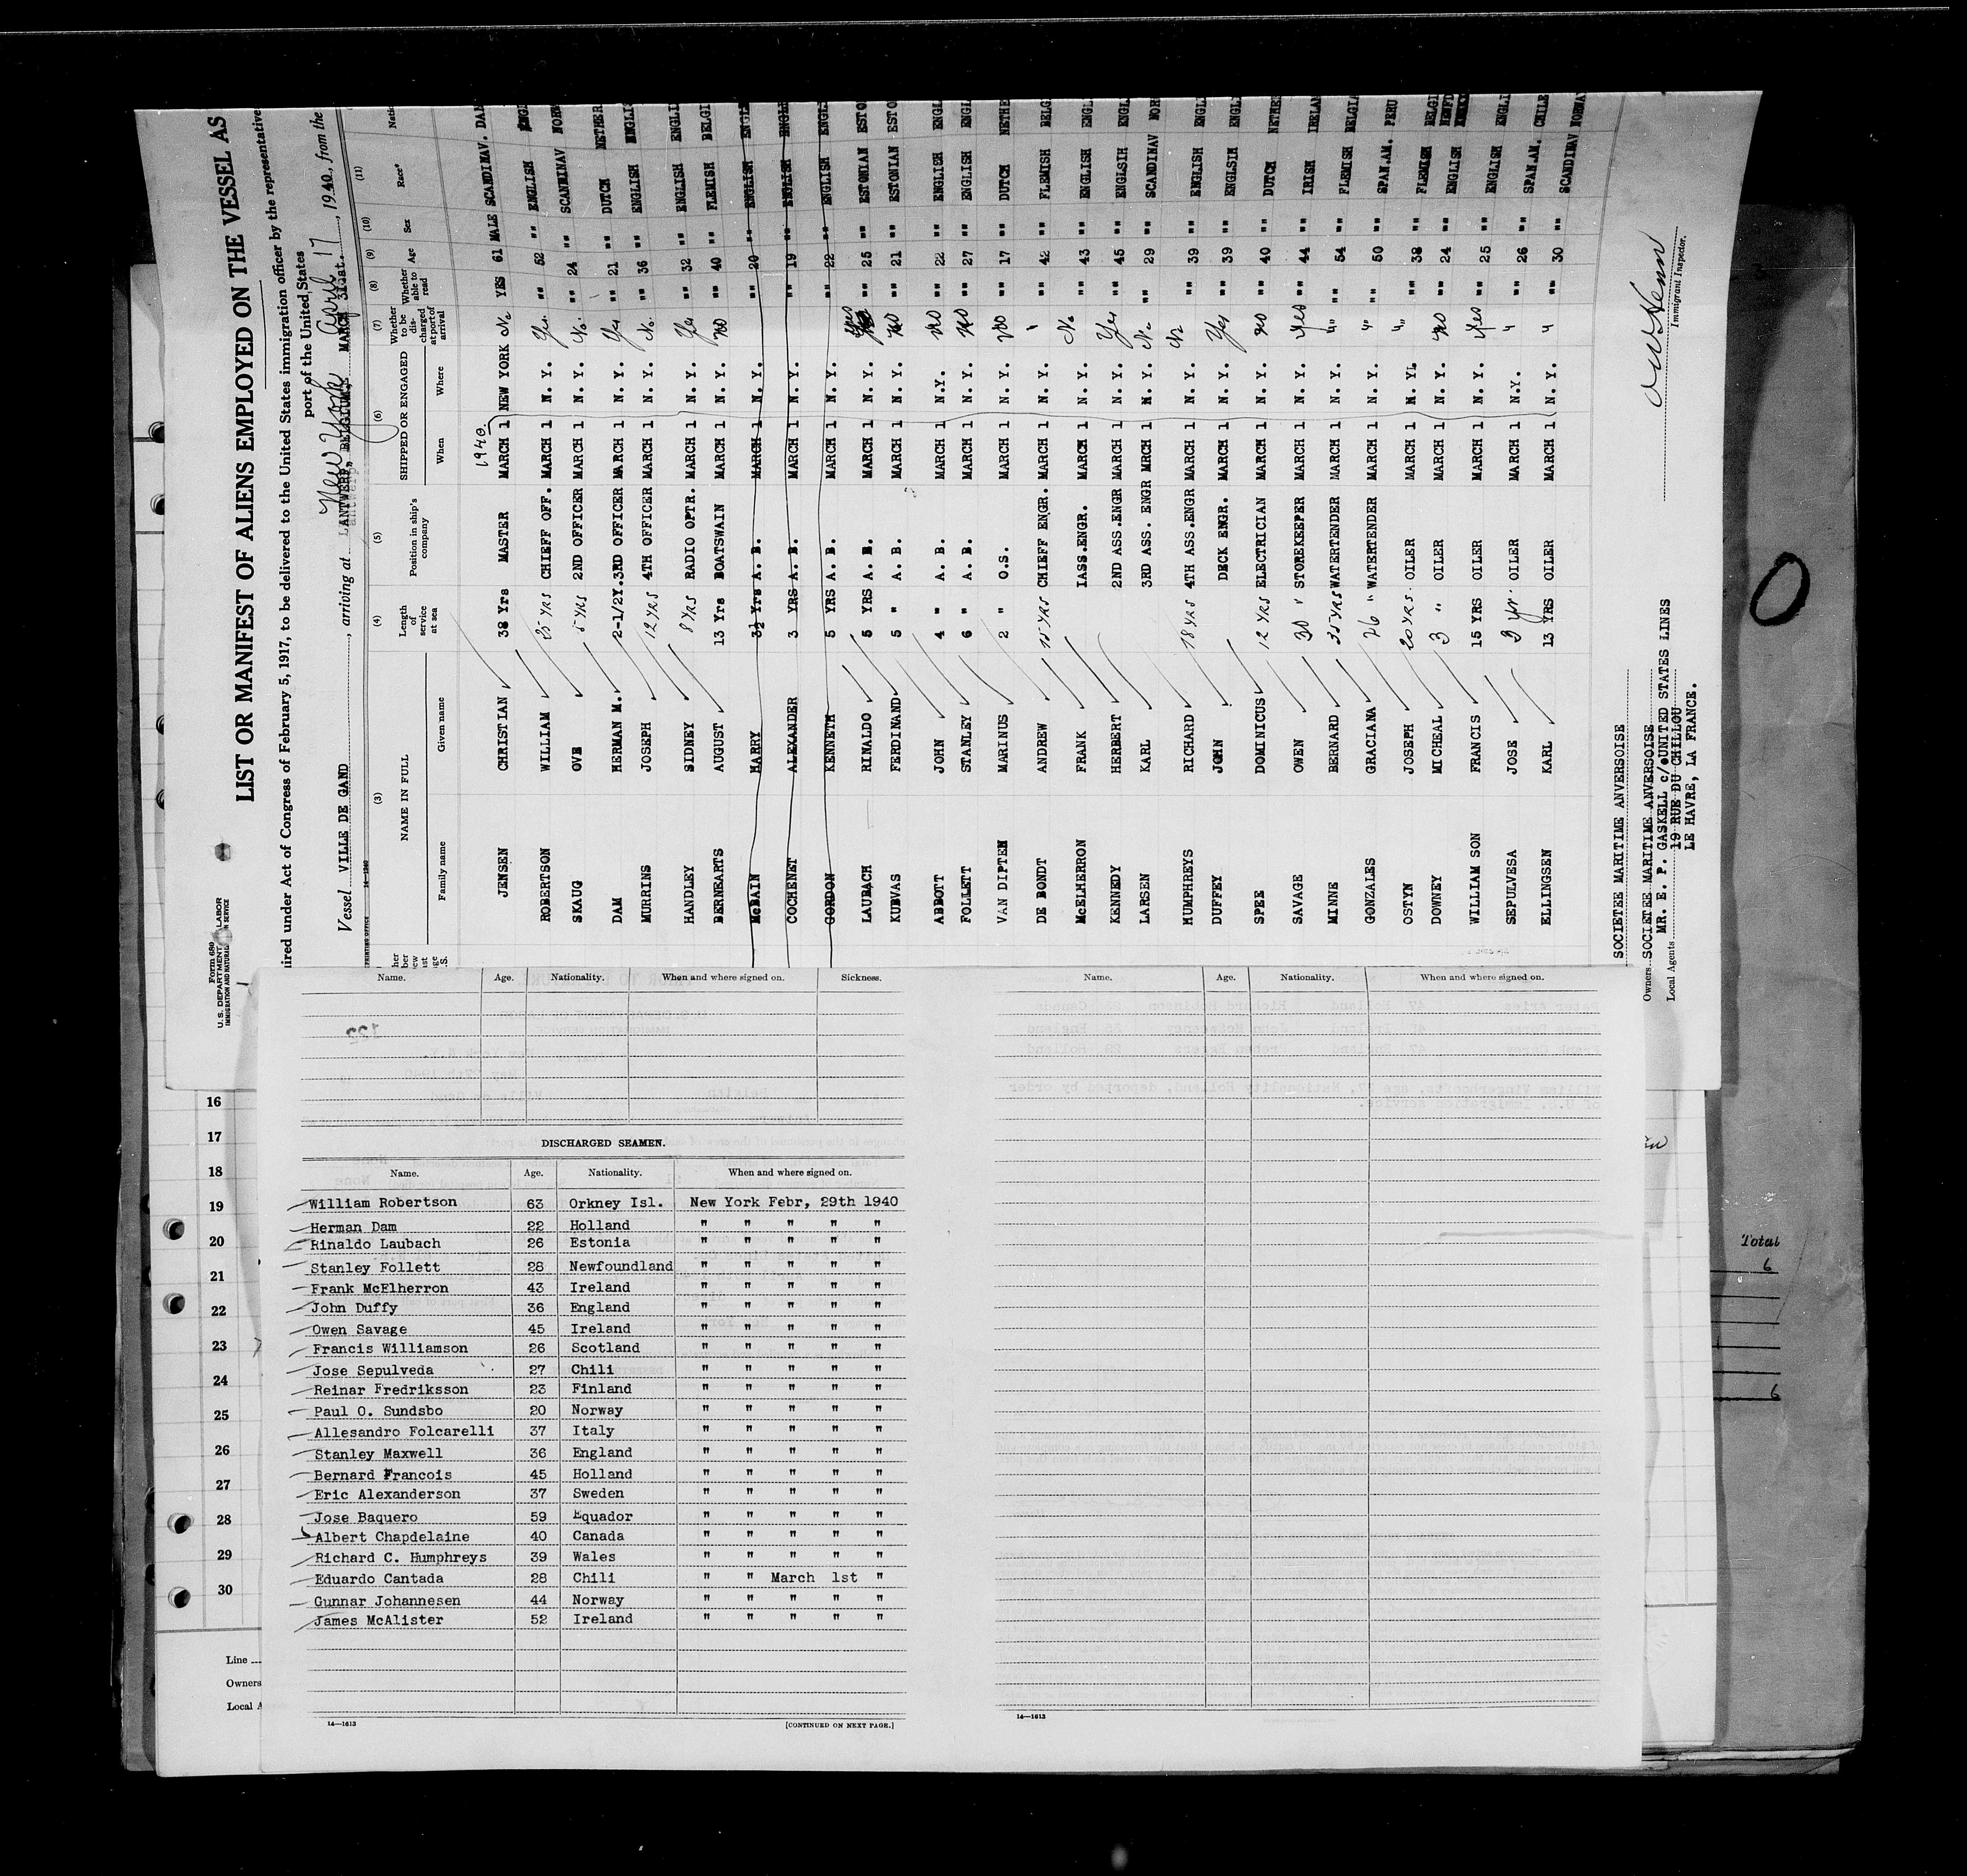 Form 680
U. S. DEPARTMENT LABOR
IMMIGRATION AND NATURA SERVICE
LIST OR MANIFEST OF ALIENS EMPLOYED ON THE VESSEL AS
ired under Act of Congress of February 5, 1917, to be delivered to the United States immigration officer by the representative
port of the United States
Vessel VILLE DE GAND, arriving at New York April 17, 1940, from the
ANTWERP, BELGIUM, MARCH
(3) (4) (5) (6) (7) (8) (9) (10) (11)
NAME IN FULL
Family name Given name
Length of service at sea
Position in ship's company
SHIPPED OR ENGAGED
When Where
Whether to be discharged at port of arrival
Whether able to read
Age Sex Race*
1940
JENSEN CHRISTIAN 38 Yrs MASTER MARCH 1 NEW YORK No YES 61 MALE SCANDINAV. DAN
ROBERTSON WILLIAM 25 YRS CHIEFF OFF. MARCH 1 N. Y. Yes "" 52 "" ENGLISH ENGL
SKAUG OVE 5 YRS 2ND OFFICER MARCH 1 N. Y. No. "" 24 "" SCANDINAV NORW
DAM HERMAN M. 2-1/2Y. 3RD OFFICER MARCH 1 N. Y. Yes "" 21 "" DUTCH NETHER
MURRINS JOSEPH 12 YRS 4TH OFFICER MARCH 1 N. Y. No. "" 36 "" ENGLISH ENGLI
HANDLEY SIDNEY 8 YRS RADIO OPTR. MARCH 1 N. Y. Yes "" 32 "" ENGLISH ENGLI
BERNEARTS AUGUST 13 Yrs BOATSWAIN MARCH 1 N. Y. no "" 40 "" FLEMISH BELGI
McBAIN HARRY 3½ Yrs A. B. MARCH 1 N. Y. "" 20 "" ENGLISH ENGL
COCHENET ALEXANDER 3 YRS A. B. MARCH 1 N. Y. "" 19 "" ENGLISH ENGL
GORDON KENNETH 5 YRS A. B. MARCH 1 N. Y. "" 22 "" ENGLISH ENGL
LAUBACH RINALDO 5 YRS A. B. MARCH 1 N. Y. yes "" 25 "" ESTONIAN ESTO
KUBVAS FERDINAND 5 " A. B. MARCH 1 N. Y. no "" 21 "" ESTONIAN ESTO
ABBOTT JOHN 4 " A. B. MARCH 1 N.Y. no "" 22 "" ENGLISH ENGL
FOLLETT STANLEY 6 " A. B. MARCH 1 N. Y. "" 27 "" ENGLISH ENGL
VAN DIPTEN MARINUS 2 " O.S. MARCH 1 N. Y. no "" 17 "" DUTCH NETHE
DE BONDT ANDREW 25 YRS CHIEFF ENGR. MARCH 1 N. Y. " "" 42 "" FLEMISH BELG
McELHERRON FRANK 1ASS.ENGR. MARCH 1 N. Y. No "" 43 "" ENGLISH ENGL
KENNEDY HERBERT 2ND ASS.ENGR MARCH 1 N. Y. Yes "" 45 "" ENGLSIH ENGL
LARSEN KARL 3RD ASS. ENGR MRCH 1 N. Y. No "" 29 "" SCANDINAV NOR
HUMPHREYS RICHARD 18 YRS 4TH ASS.ENGR MARCH 1 N. Y. No "" 39 "" ENGLISH ENGLI
DUFFEY JOHN DECK ENGR. MARCH 1 N. Y. Yes "" 39 "" ENGLSIH ENGLI
SPEE DOMINICUS 12 YRS ELECTRICIAN MARCH 1 N. Y. no "" 40 "" DUTCH NETHER
SAVAGE OWEN 30 " STOREKEEPER MARCH 1 N. Y. Yes "" 44 "" IRISH IRELAN
MINNE BERNARD 35 YRS WATERTENDER MARCH 1 N. Y. "" 54 "" FLEMISH BELGIA
GONZALES GRACIANA 26 " WATERTENDER MARCH 1 N. Y. "" 50 "" SPAN.AM. PERU
OSTYN JOSEPH 20 YRS. OILER MARCH 1 N. YL "" 38 "" FLEMISH BELGI
DOWNEY MICHEAL 3 " OILER MARCH 1 N. Y. no "" 24 "" ENGLISH NEWFD
WILLIAM SON FRANCIS 15 YRS OILER MARCH 1 N. Y. Yes "" 25 "" ENGLISH ENGLI
SEPULVESA JOSE 9 yr. OILER MARCH 1 N.Y. " "" 26 "" SPAN.AM. CHILE
ELLINGSEN KARL 13 YRS OILER MARCH 1 N. Y. " "" 30 "" SCANDINAV NORWA
SOCIETEE MARITIME ANVERSOISE
Owners SOCIETEE MARITIME ANVERSOISE
Local Agents MR. E. P. GASKELL c/o UNITED STATES LINES
19 RUE DU CHILLOU
LE HAVRE, LA FRANCE.
Immigrant Inspector.
Name. Age. Nationality. When and where signed on. Sickness.
DISCHARGED SEAMEN.
Name. Age. Nationality. When and where signed on.
William Robertson 63 Orkney Isl. New York Febr, 29th 1940
Herman Dam 22 Holland " " " " "
Rinaldo Laubach 26 Estonia " " " " "
Stanley Follett 28 Newfoundland " " " " "
Frank McElherron 43 Ireland " " " " "
John Duffy 36 England " " " " "
Owen Savage 45 Ireland " " " " "
Francis Williamson 26 Scotland " " " " "
Jose Sepulveda 27 Chili " " " " "
Reinar Fredriksson 23 Finland " " " " "
Paul O. Sundsbo 20 Norway " " " " "
Allesandro Folcarelli 37 Italy " " " " "
Stanley Maxwell 36 England " " " " "
Bernard Francois 45 Holland " " " " "
Eric Alexanderson 37 Sweden " " " " "
Jose Baquero 59 Equador " " " " "
Albert Chapdelaine 40 Canada " " " " "
Richard C. Humphreys 39 Wales " " " " "
Eduardo Cantada 28 Chili " " March 1st "
Gunnar Johannesen 44 Norway " " " " "
James McAlister 52 Ireland " " " " "
14—1613
[CONTINUED ON NEXT PAGE.]
Name. Age. Nationality. When and where signed on.
14—1613
16
17
18
19
20
21
22
23
24
25
26
27
28
29
30
Line
Owners
Local A
Total
6
6